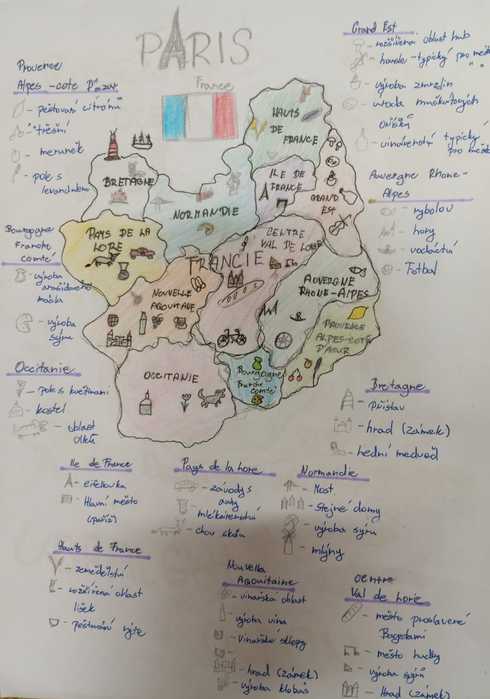 PARIS
France
Provence
Alpes-cote
- pěstování citrónů
- třešní
- meruněk
- pole s
levandulou
Bourgogne
Franche
comté
- výroba
másla
- výroba
sýru
Occitanie
- pole s květinami
- kostel
- oblast
vlků
Grand Est
- rozšířena oblast hub
- housle - typický pro město
- výroba zmrzlin
oříšků
- vinařství typický
pro město
Auvergne Rhone-
Alpes
- rybolov
- hory
- Fotbal
Bretagne
- Přístav
- hrad (zámek)
- lední medvěd
HAUTS
DE
FRANCE
ILE DE
FRANCE
GRAND
EST
BRETAGNE
NORMANDIE
PAYS DE LA
LOIRE
FRANCIE
CENTRE
VAL DE LOIRE
NOUVELLE
AQOUITAINE
AUVERGNE
RHONE-ALPES
PROVENCE
ALPES-COTE
D'AZUR
OCCITANIE
Bourgogne
Franche
comté
Ile de France
- eifelovka
- Hlavní město
(paříž)
Pays de la loire
- závody s
auty
- mlékárenství
- chov skotu
Normandie
- Most
- stejné domy
- výroba sýru
- mlýny
Hauts de France
- zemědělství
- rozšířená oblast
lišek
- pěstování rýže
Nouvella
Aqouitaine
- vinařská oblast
- výroba vína
- vinařské sklepy
- hrad (zámek)
- výroba klobás
centre
Val de loire
- město proslavené
- město hudby
- výroba sýrů
- Hrad (zámek)